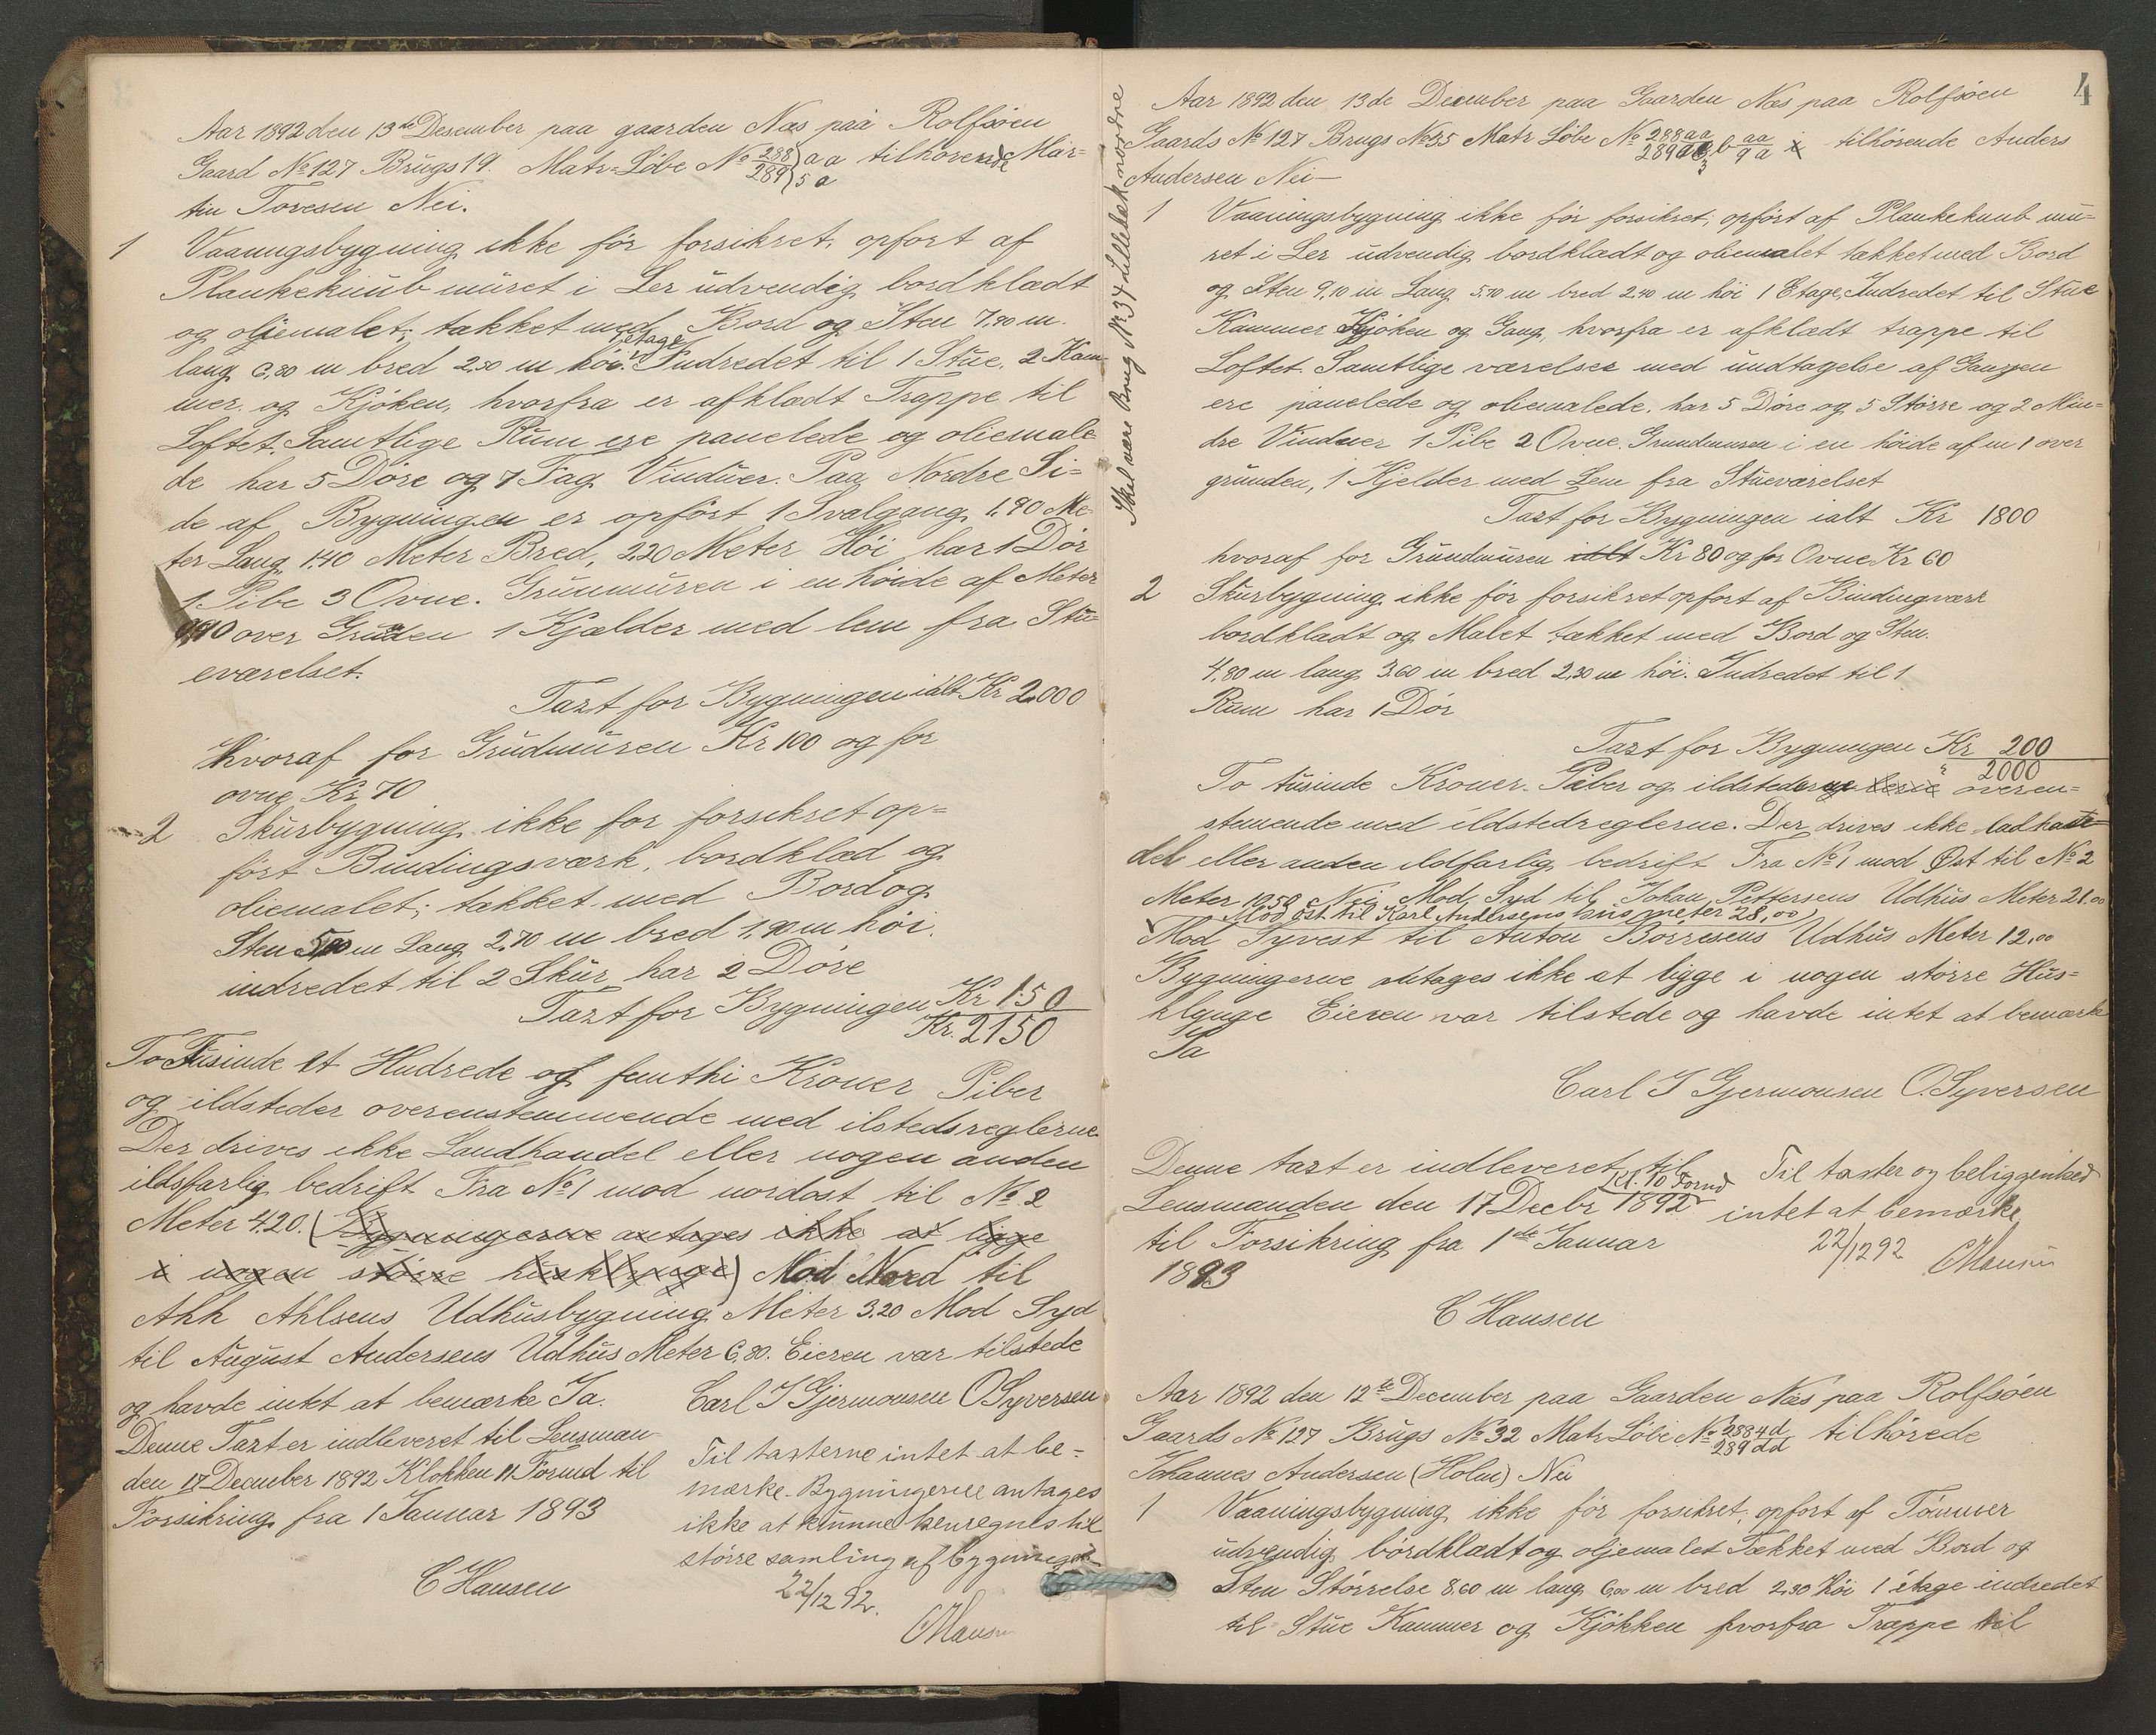 Aar 1892 den 13de Desember paa gaarden Næs paa Rolfsöen
Gaard No 127 Brugs 19. Matr=Löbe No 288/289 } aa 5 a tilhorende Mar=
tin Tovesen Nei.
1 Vaaningsbygning ikke för forsikret, opfort af
Plankekubb muret i Ler udvendig bordklædt
og oljemalet; takket med Bord og Sten 7,90 m.
lang 6,80 m bred 2,50 m höi. 1 etage Indredet til 1 Stue, 2 Kam=
mer og Kjöken, hvorfra er afklædt Trappe til
Loftet. Samtlige Rum ere panelede og oliemale
de har 5 Döre og 7 Fag Vinduer. Paa Nordre Si=
de af Bygningen er opfört 1 Svalgang 1,90 Me=
ter Lang 1,40 Meter Bred, 2,20 Meter Höi har 1 Dör
1 Pibe 3 Ovne. Grunmuren i en höide af Meter
0,90 over Gruden 1 Kjælder med lem fra Stu=
eværelset.
Taxt for Bygningen ialt Kr 2000
hvoraf for Grudmuren Kr 100 og for
ovne Kr 70
2 Skurbygning ikke for forsikret op=
fört Bindingsværk, bordklæd og
oliemalet; takket med Bord og
Sten 5,00 m Lang 2,70 m bred 1,90 m höi.
indredet til 2 Skur har 2 Döre
Taxt for Bygningen Kr 150
Kr. 2150
To Tusinde et Hudrede og femthi Kroner Piber
og ildsteder overenstemmende med ilstedsreglerne
Der drives ikke Landhandel eller nogen anden
ildsfarlig bedrift Fra No 1 mod nordost til No 2
Meter 4,20. (Bygningerne antages ikke at ligge
i nogen större husklynge) Mod Nord til
Ahh Ahlsens Udhusbygning Meter 3,20 Mod Syd
til August Andersens Udhus Meter 6,80. Eieren var tilstede
og havde intet at bemærke Ja.
Carl J Gjermonsen O Syversen
Denne Taxt er indleveret til Lensman
den 17 December 1892 Klokken 11 Formd til
Forsikring fra 1 Januar 1893
C Hansen
Til taxterne intet at be=
mærke. Bygningerne antages
ikke at kunne henregnes til
större samling af bygninger
22/12 92.
C Hansen
Skal være Brug No 34 Lillebæk nordre
4
Aar 1892 den 13de December paa Gaarden Næs paa Rolfsöen
Gaards No 127 Brugs No 35 Matr Löbe No 288 aa/289 b aa/9 a i tilhörende Anders
Andersen Nei—
1 Vaaningsbygning ikke för forsikret; opfört af Plankekubb mu=
ret i Ler udvendig bordklædt og oliemalet takket med Bord
og Sten 9,10 m Lang 5,70 m bred 2,40 m höi 1 Etage, Indredet til Stue
Kammer Kjöken og Gang, hvorfra er afklædt trappe til
Loftet. Samtlige værelser med undtagelse af Gangen
ere panelede og oliemalede, har 5 Döre og 5 Större og 2 Min=
dre Vinduer 1 Pibe 2 Ovne. Grundmuren i en höide af m 1 over
grunden, 1 Kjelder med Lem fra Stueværelset
Taxt for Bygningen ialt Kr 1800
hvoraf for Grundmuren ialt Kr 80 og for Ovne Kr 60
2 Skurbygning ikke för forsikret opfört af Bindingværk
bordklædt og Malet takket med Bord og Sten
4,80 m lang 3,60 m bred 2,30 m höi. Indredet til 1
Rum har 1 Dör
Taxt for Bygningen Kr 200
2000
To tusinde Kroner. Piber og ildstederne ere overen=
stmende med ildstedreglerne. Der drives ikke Ladhan=
del eller anden ildfarlig bedrift Fra No 1 mod Øst til No 2
Meter 10,50 Nei Mod Syd til Johan Pettersens Udhus Meter 21.00
Mod öst til Karl Andersens hus meter 28,00
Mod Syvest til Anton Borresens Udhus Meter 12,00
Bygningerne antages ikke at ligge i nogen större Hus=
klynge Eieren var tilstede og havde intet at bemærke
Ja
Carl J Gjermonsen O. Syversen
Denne taxt er indleveret til
Lensmanden den 17 Decbr 1892 Kl. 10 Formd
til Forsikring fra 1ste Januar
1893
C Hansen
Til taxter og beliggenhed
intet at bemærke
22/12 92 C Hansen
Aar 1892 den 12te December paa Gaarden Næs paa Rolfsöen
Gaards No 127 Brugs No 32 Matr Löbe No 288 4d/289 dd tilhörede
Johannes Andersen (Holm) Nei
1 Vaaningsbygning ikke för forsikret, opfort af Tömmer
udvendig bördklædt og oljemalet Tækket med Bord og
Sten Störrelse 8,60 m lang 6,00 m bred 2,30 höi 1 étage indredet
til Stue Kammer og Kjökken hvorfra Trappe til